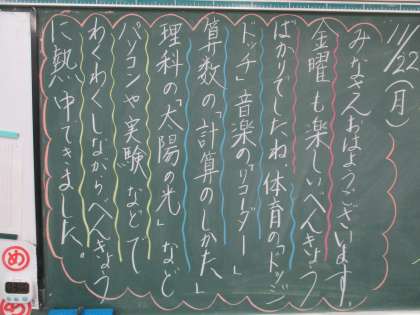 11/22(月)
みなさんおはようございます。
金曜も楽しいべんきょう
ばかりでしたね。体育の「ドッジ
ドッチ」音楽の「リコーダー」
算数の「計算のしかた」
理科の「太陽の光」など
パソコンや実験などで
わくわくしながらべんきょう
に熱中できました。
め